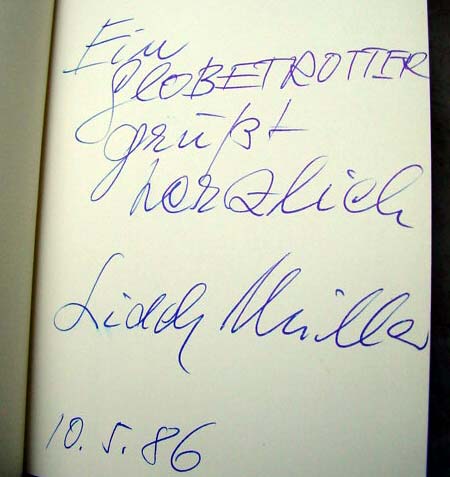 Ein
GLOBETROTTER
grüßt
herzlich
Liddy Müller
10.5.86